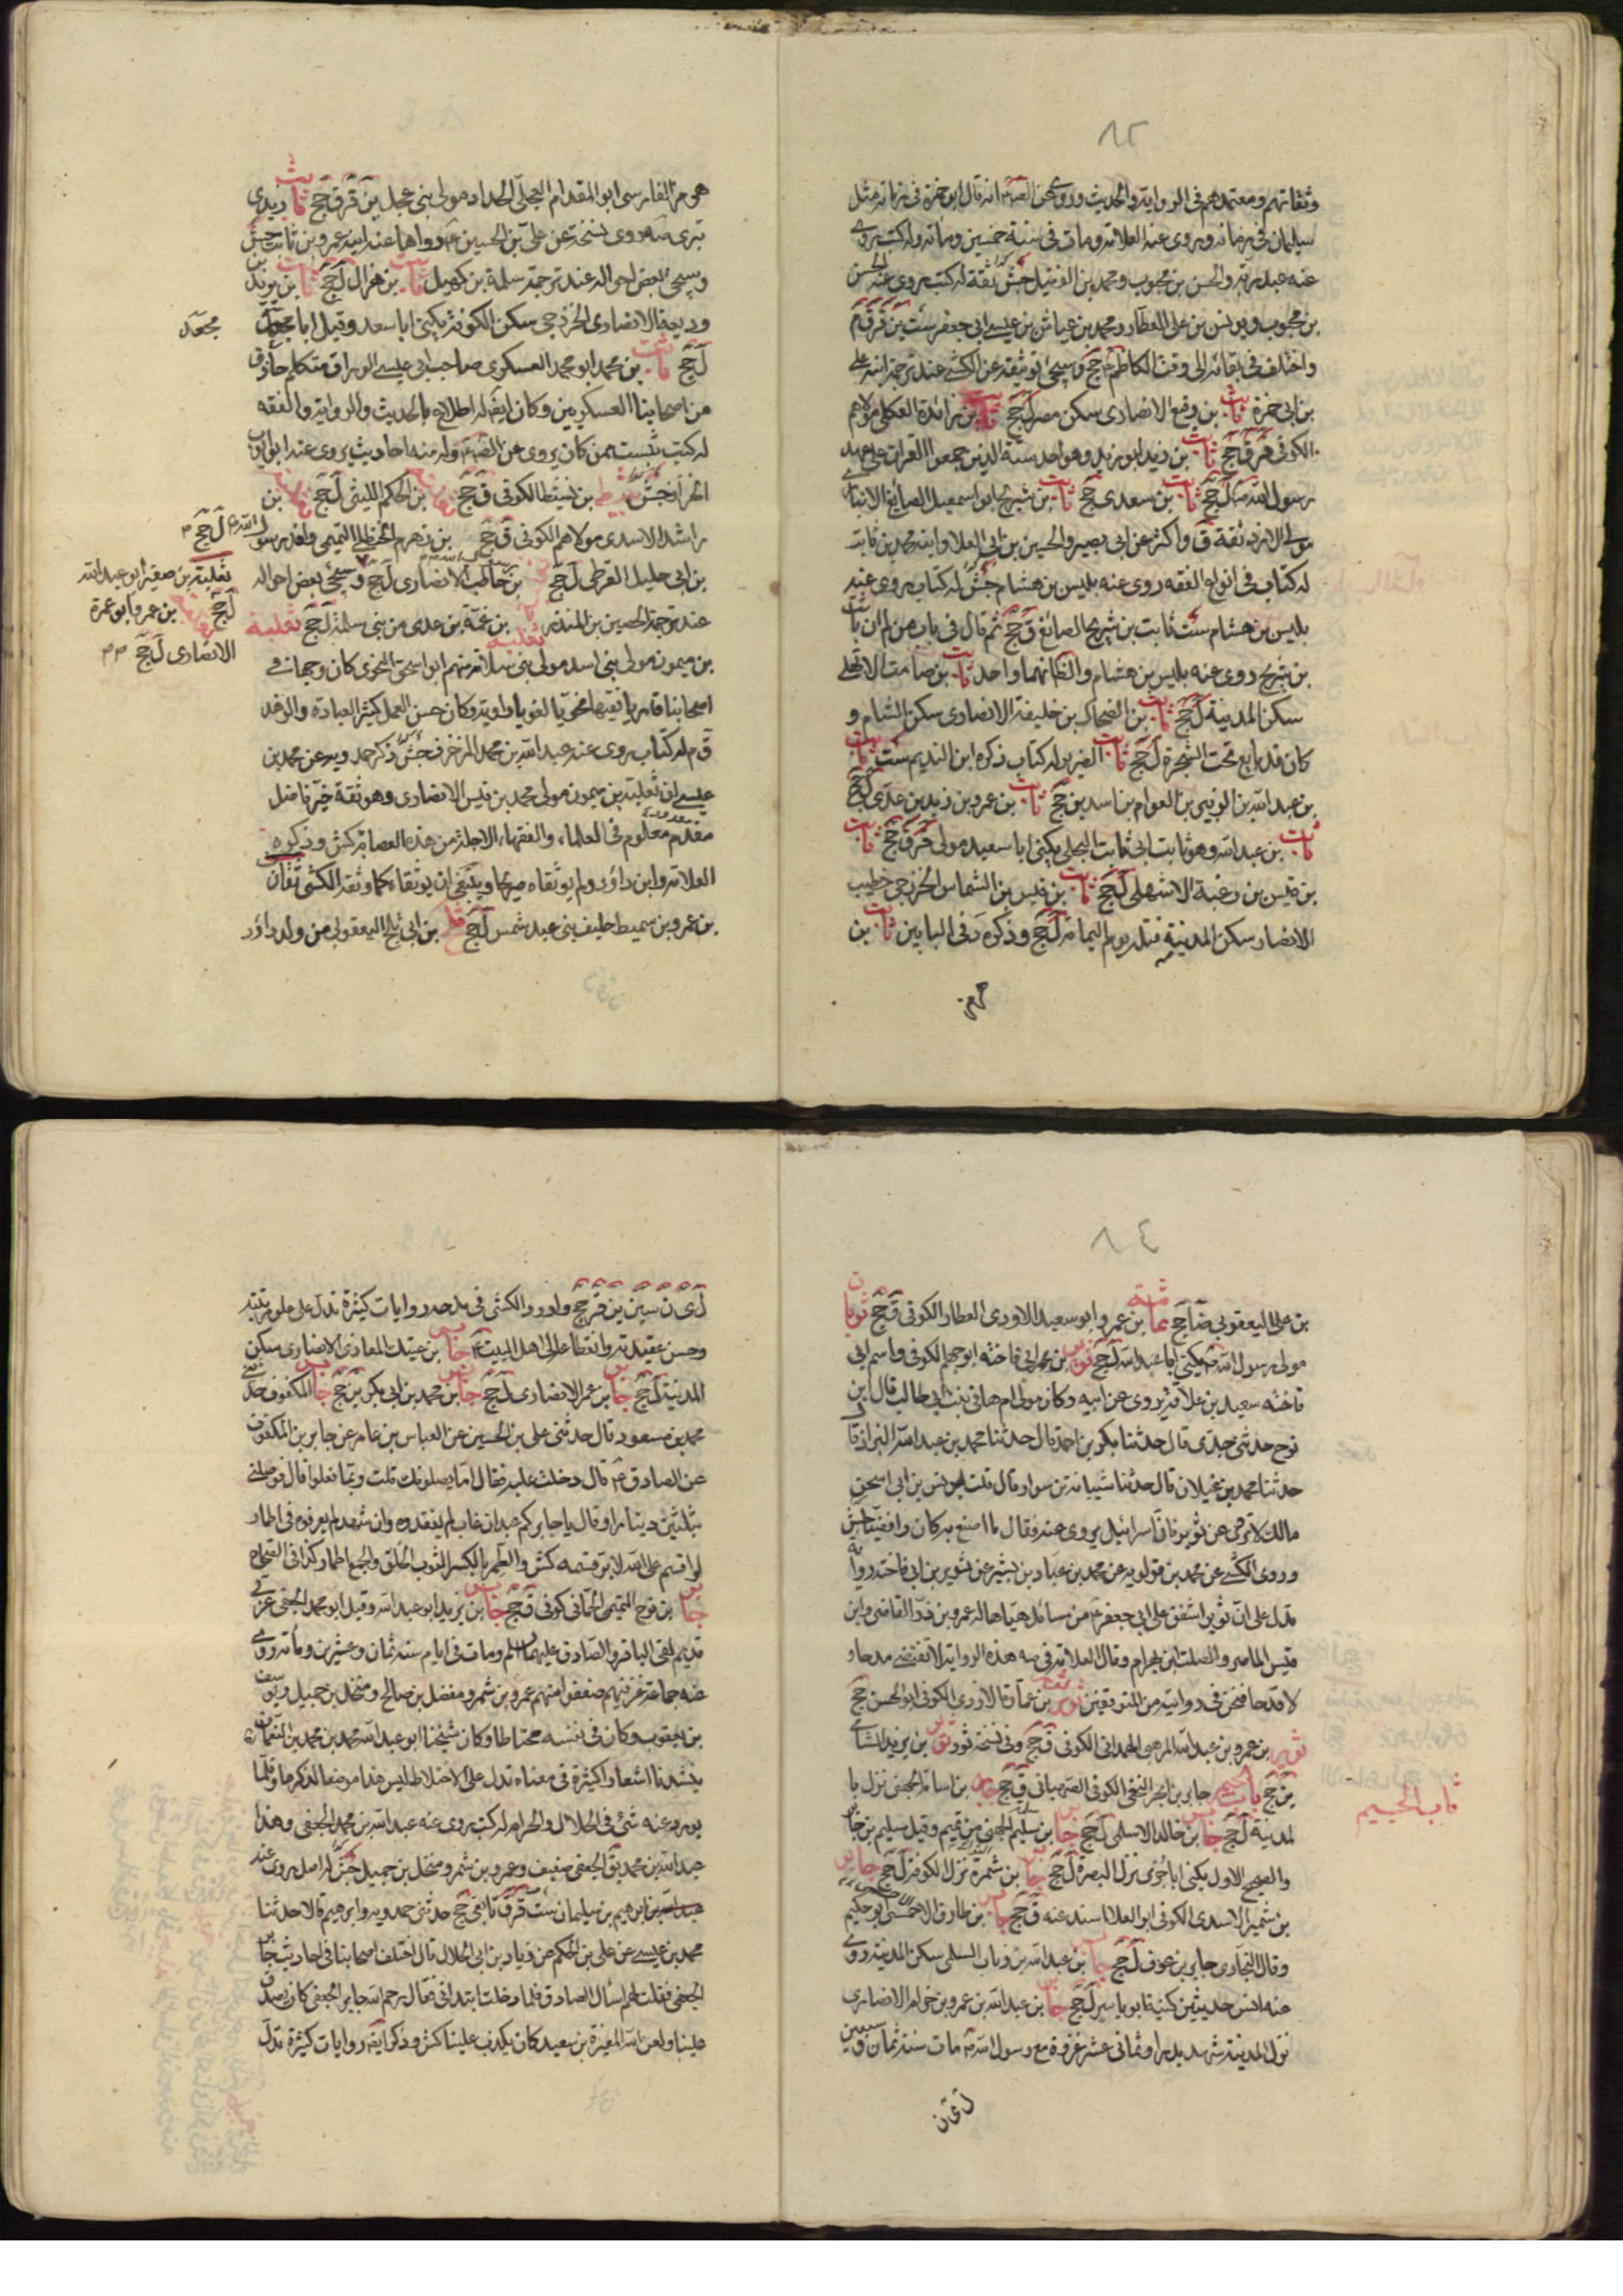 ٨٢
وثقاتهم ومعتمدهم في الرواية والحديث وروى عن انه قال ابو حمزة في زمانه مثل
سلمان في زمانه وروى عنه العلامة ومات في سنة خمسين ومأة وله كتب روى
عنه عبد ربه والحسن بن محبوب ومحمد بن الفضيل جش ثقة له كتب يروى عنه الحسن
بن محبوب ويونس بن علي العطار ومحمد بن عياش بن عيسى ابي جعفر ست ين ق م
واختلف في بقائه الى وقت الكاظم جج وسيجئ توثيقه عن الكشي عند ترجمة ابنه علي
بن ابي حمزة ثابت بن رفيع الانصاري سكن مصر ل جج ثابت بن زائدة العكلي مولاهم
الكوفي ق ق جج ثابت بن زيد ابو زيد وهو احد ستة الذين جمعوا القران على عهد
رسول الله ل جج ثابت بن سعدى جج ثابت بن شريح ابو اسمعيل الصائغ الانباري
مولى الازد ثقة ق واكثر عن ابي بصير والحسين بن ابي العلا وابنه محمد بن ثابت
له كتاب في انواع الفقه روى عنه بليس بن هشام جش له كتاب يروى عنه
بليس بن هشام ست ثابت بن شريح الصائغ ق جج ثم قال في باب من لم ثابت
بن شريح روى عنه بليس بن هشام والظ انهما واحد ثابت بن صامت الاشهلي
سكن المدينة ل جج ثابت بن الضحاك بن خليفة الانصاري سكن الشام و
كان قد بايع تحت الشجرة ل جج ثابت الضرير له كتاب ذكره ابن النديم ست ثابت
بن عبد الله بن الزبير بن العوام بن اسد ين جج ثابت بن عمرو بن زيد بن عدى ل جج
ثابت بن عبد الله وهو ثابت ابي ثابت البجلي يكنى ابا سعيد مولى ق ق جج ثابت
بن قيس بن زغبة الاشهلي ل جج ثابت بن قيس بن الشماس الخزرجي خطيب
الانصار سكن المدينة قتل يوم اليمامة ل جج وذكره د في البابين ثابت بن
هرمز
هو مز الفارسي ابو المقدام العجلي الحداد مولى بني عجل ين ق ق جج ثابت زيدى
بترى صه روى نسخة عن علي بن الحسين ع رواها عنه ابنه عمرو بن ثابت جش
وسيجئ بعض احواله عند ترجمة سلمة بن كهيل ثابت بن هزال ل جج ثابت بن يزيد بن
وديعة الانصاري الخزرجي سكن الكوفة يكنى ابا سعد وقيل ابا
ل جج ثابت بن محمد ابو محمد العسكري صاحب ابي عيسى الوراق متكلم حاذق
من اصحابنا العسكريين وكان ايضا له اطلاع بالحديث والرواية والفقه
له كتب
بن بسيط الكوفي ق جج بن الحكم الليثي ل جج بن
راشد الاسدي مولاهم الكوفي ق جج بن زهدم الحنظلي التميمي
بن ابي حليل القرظي ل جج بن حاطب الانصاري ل جج وسيجئ بعض احواله
عند ترجمة الحصين بن المنذر بن غنمة بن عدى من بني سلمة ل جج ثعلبة
بن ميمون مولى بني اسد مولى بني سلامة منهم ابو اسحق النحوى كان وجها في
اصحابنا قاريا فقيها نحويا لغويا راوية وكان حسن العمل كثير العبادة والزهد
ق م له كتاب يروى عنه عبد الله بن محمد المزخرف جش ذكر حمدويه عن محمد بن
عيسى ان ثعلبة بن ميمون مولى محمد بن قيس الانصاري وهو ثقة خير فاضل
مقدم معلوم في العلماء والفقهاء الاجلة من هذه العصابة كش وذكروه
العلامة وابن داود ولم يوثقاه صريحا وينبغي ان يوثقاه كما وثقه الكشي ثقاف
بن عمرو بن سميط حليف بني عبد شمس ل جج بن ابي ثلج اليعقوبي من ولد داود
ثعلبة بن صقير ابو عبد الله
ل جج بن عمرو ابو عمرة
الانصاري ل جج
٨٤
بن علي اليعقوبي ضا جج ثمامة بن عمرو ابو سعيد الاودي العطار الكوفي ق جج ثوبان
مولى رسول الله يكنى ابا عبد الله ل جج ثوير بن ابي فاخته ابو جهم الكوفي واسم ابي
فاخته سعيد بن علاقة يروى عن ابيه وكان مولى ام هاني بنت ابي طالب قال ابن
نوح حدثني جدى قال حدثنا بكر بن احمد قال حدثنا محمد بن عبد الله البزاز قال
حدثنا محمود بن غيلان قال حدثنا شبابة بن سوار قال قلت ليونس بن ابي اسحق
مالك لا تروى عن ثوير فان اسرائيل يروى عنه فقال ما اصنع به كان رافضيا جش
وروى الكشي عن محمد بن قولويه عن محمد بن عباد بن بشير عن ثوير بن ابي فاخته رواية
تدل على ان ثوير اشفق على ابي جعفر ع من مسائل هيأها له عمرو بن ذر القاضي وابن
قيس الماصر والصلت ابن بهرام وقال العلامة في صه هذه الرواية لا تقتضي مدحا و
لا قدحا فنحن في روايته من المتوقفين ثوير بن عمارة الازدي الكوفي ابو الحسن جج
ثوير بن عمرو بن عبد الله المرهبي الهمداني الكوفي ق جج وفي نسخة ثور ثور بن يزيد الشامي
ين جج باب الجيم جابر بن ابجر النخعي الكوفي الصهباني ق جج جابر بن اسامة الجهني نزل با
لمدينة ل جج جابر بن خالد الاسلمي ل جج جابر بن سليم الهجيمي من تميم وقيل سليم بن جابر
والصحيح الاول يكنى ابا جرى نزل البصرة ل جج جابر بن سمرة نزل الكوفة ل جج جابر
بن شمير الاسدى الكوفي ابو العلا اسند عنه ق جج جابر بن طارق الاحمسي ابو حكيم
وقال البخارى جابر بن عوف ل جج جابر بن عبد الله بن رباب السلمى سكن المدينة روى
عنه انس حديثين كنيته ابو ياسر ل جج جابر بن عبد الله بن عمرو بن حزام الانصارى
نزل المدينة شهد بدرا وثماني عشر غزوة مع رسول الله مات سنة ثمان وسبعين
ل ى ن
باب الجيم
ل ى ن سين ين قر جج واورد الكشي في مدحه روايات كثيرة تدل على علو مرتبته
وحسن عقيدته وانقطاعه الى اهل البيت ع جابر بن عتيك المعاذى الانصارى سكن
المدينة ل جج جابر بن عمر الانصارى ل جج جابر بن محمد بن ابي بكر ين جج جابر المكفوف حدثني
محمد بن مسعود قال حدثني علي بن الحسين عن العباس بن عامر عن جابر بن المكفوف
عن الصادق ع قال دخلت عليه فقال اما يصلونك قلت ربما فعلوا قال فوصلني
بثلثين دينارا وقال يا جابر كم عبد ان غاب لم يفقدوه وان شهد لم يعرفوه في اطمار
لو اقسم على الله لابر قسمه كش والطمر بالكسر الثوب الخلق والجمع اطمار كذا في الصحاح
جابر بن نوح التميمي الحماني كوفي ق جج جابر بن يزيد ابو عبد الله وقيل ابو محمد الجعفي عربي
قديم لقى الباقر والصادق عليهما السلم ومات في ايام سنة ثمان وعشرين ومأة روى
عنه جماعة غمز فيهم ضعفوا منهم عمرو بن شمر ومفضل بن صالح ومنخل بن جميل ويوسف
بن يعقوب وكان في نفسه مختلطا وكان شيخنا ابو عبد الله محمد بن محمد بن النعمان
ينشدنا اشعارا كثيرة في معناه تدل على الاختلاط ليس هذا موضعا لذكرها وقلما
يورد عنه شئ في الحلال والحرام له كتب يروى عنه عبد الله بن محمد الجعفي وهذا
عبد الله بن محمد يق الجعفي ضعيف وعمرو بن شمر ومنخل بن جميل جش له اصل يروى عنه
ابرهيم بن سليمان ست ق ق تابعي جج حدثني حمدويه وابرهيم قالا حدثنا
محمد بن عيسى عن علي بن الحكم عن زياد بن ابي الحلال قال اختلف اصحابنا في احاديث جابر
الجعفي فقلت لهم اسأل الصادق فلما دخلت ابتدانى فقال رحم الله جابر الجعفي كان يصدق
علينا ولعن الله المغيرة بن سعيد كان يكذب علينا كش وذكر ايضه روايات كثيرة تدل